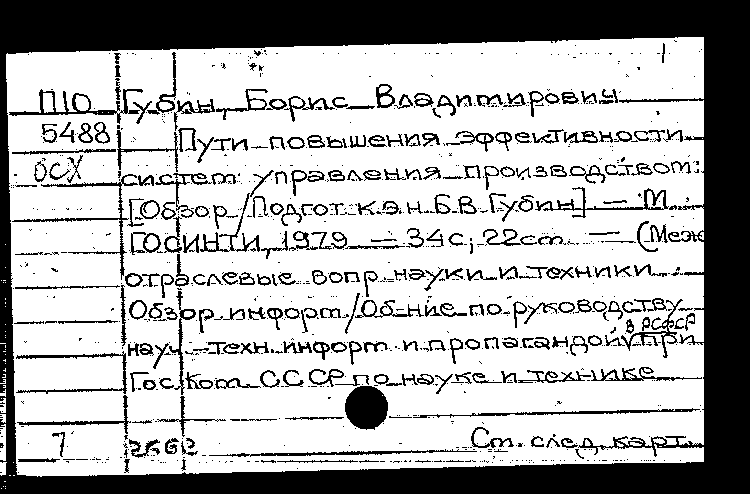 1
П10 Губин, Борис Владимирович
5488 Пути повышения эффективности
ОСХ систем управления производством:
[Обзор / Подгот. к.э.н. Б.В. Губин] — М.:
ГОСИНТИ, 1979 — 34с; 22см — (Меж
отраслевые вопр. науки и техники:
Обзор. информ. / Об-ние по руководству
науч.-техн. информ. и пропагандой в РСФСР при
Гос. Ком. СССР по науке и технике
7 2662 См. след. карт.